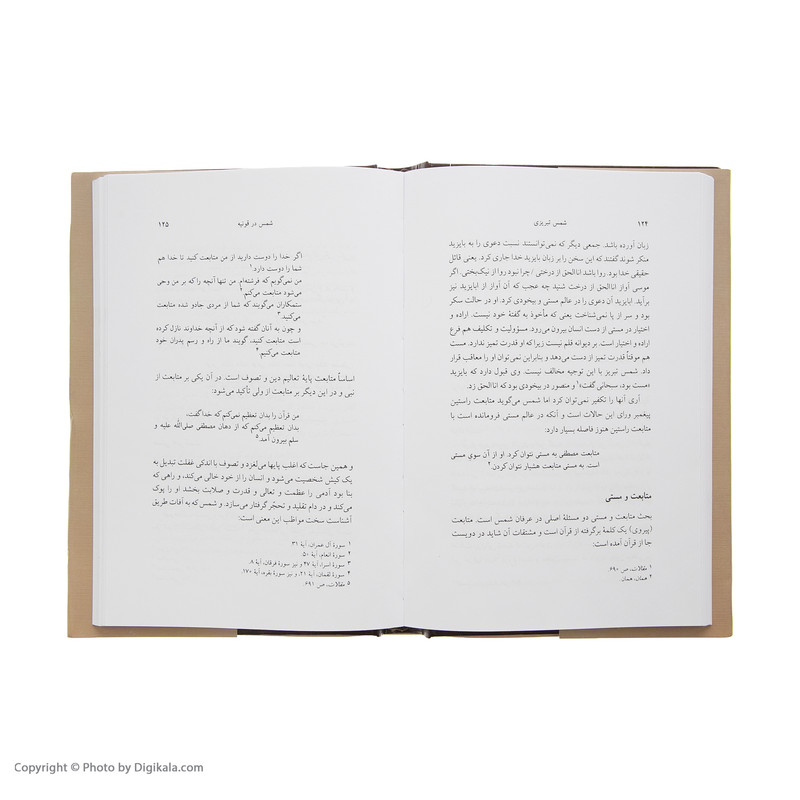 ۱۲۴
شمس تبریزی
زبان آورده باشد. جمعی دیگر که نمی‌توانستند نسبت دعوی را به بایزید
منکر شوند گفتند که این سخن را بر زبان بایزید خدا جاری کرد. یعنی قائل
حقیقی خدا بود. روا باشد انا الحق از درختی / چرا نبود روا از نیک‌بختی. اگر
موسی آواز انا الحق از درخت شنید چه عجب که آن آواز از ابایزید نیز
برآید. ابایزید آن دعوی را در عالم مستی و بیخودی کرد. او در حالت سکر
بود و سر از پا نمی‌شناخت یعنی که مأخوذ به گفتهٔ خود نیست. اراده و
اختیار در مستی از دست انسان بیرون می‌رود. مسؤولیت و تکلیف هم فرع
اراده و اختیار است. بر دیوانه قلم نیست زیرا که او قدرت تمیز ندارد. مست
هم موقتاً قدرت تمیز از دست می‌دهد و بنابراین نمی‌توان او را معاقب قرار
داد. شمس تبریز با این توجیه مخالف نیست. وی قبول دارد که بایزید
«مست بود، سبحانی گفت»۱ و منصور در بیخودی بود که انا الحق زد.
آری آنها را تکفیر نمی‌توان کرد اما شمس می‌گوید متابعت راستین
پیغمبر ورای این حالات است و آنکه در عالم مستی فرومانده است با
متابعت راستین هنوز فاصله بسیار دارد:
متابعت مصطفی به مستی نتوان کرد. او از آن سوی مستی
است. به مستی متابعت هشیار نتوان کردن.۲
متابعت و مستی
بحث متابعت و مستی دو مسئلهٔ اصلی در عرفان شمس است. متابعت
(پیروی) یک کلمهٔ برگرفته از قرآن است و مشتقات آن شاید در دویست
جا از قرآن آمده است:
۱ مقالات، ص ۶۹۰.
۲ همان، همان.
شمس در قونیه
۱۲۵
اگر خدا را دوست دارید از من متابعت کنید تا خدا هم
شما را دوست دارد.۱
من نمی‌گویم که فرشته‌ام. من تنها آنچه را که بر من وحی
می‌شود متابعت می‌کنم.۲
ستمکاران می‌گویند که شما از مردی جادو شده متابعت
می‌کنید.۳
و چون به آنان گفته شود که از آنچه خداوند نازل کرده
است متابعت کنید، گویند ما از راه و رسم پدران خود
متابعت می‌کنیم.۴
اساساً متابعت پایهٔ تعالیم دین و تصوف است. در آن یکی بر متابعت از
نبی و در این دیگر بر متابعت از ولی تأکید می‌شود:
من قرآن را بدان تعظیم نمی‌کنم که خدا گفت،
بدان تعظیم می‌کنم که از دهان مصطفی صلی‌الله علیه و
سلم بیرون آمد.۵
و همین جاست که اغلب پایها می‌لغزد و تصوف با اندکی غفلت تبدیل به
یک کیش شخصیت می‌شود و انسان را از خود خالی می‌کند، و راهی که
بنا بود آدمی را عظمت و تعالی و قدرت و صلابت بخشد او را پوک
می‌کند و در دام تقلید و تحجّر گرفتار می‌سازد. و شمس که به آفات طریق
آشناست سخت مواظب این معنی است:
۱ سورهٔ آل عمران، آیهٔ ۳۱
۲ سورهٔ انعام، آیهٔ ۵۰.
۳ سورهٔ اسرا، آیهٔ ۴۷ و نیز سورهٔ فرقان، آیهٔ ۸.
۴ سورهٔ لقمان، آیهٔ ۲۱، و نیز سورهٔ بقره، آیهٔ ۱۷۰.
۵ مقالات، ص ۶۹۱.
Copyright © Photo by Digikala.com